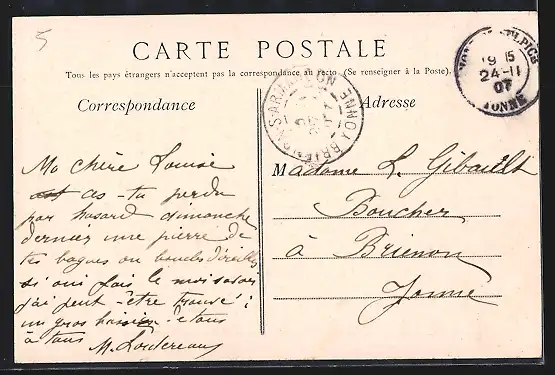 5
CARTE POSTALE
Tous les pays étrangers n'acceptent pas la correspondance au recto. (Se renseigner à la Poste).
Correspondance
Adresse
Ma chère Louise
as-tu perdu
par hasard dimanche
dernier une pierre de
tes bagues ou boucles d'oreilles
si oui fais le moi savoir
j'ai peut-être trouvé;
un gros baiser à tous
M.
Madame L. Gibault
Boucher
à Brienon
Yonne
BRIENON-S-ARMANÇON YONNE
19 15
24-11
07
YONNE